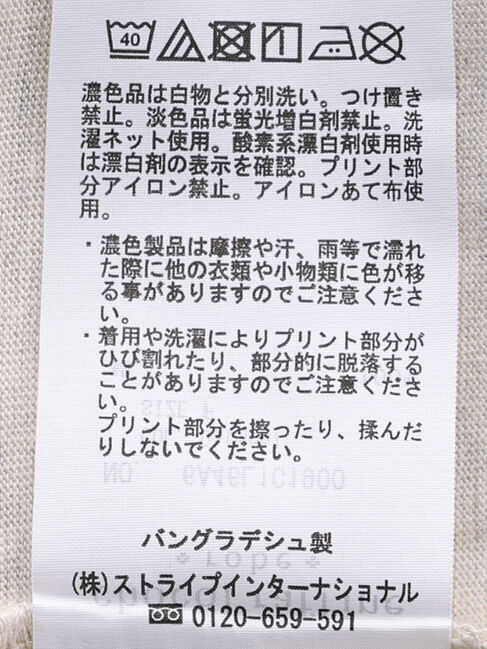 40
濃色品は白物と分別洗い。つけ置き
禁止。淡色品は蛍光増白剤禁止。洗
濯ネット使用。酸素系漂白剤使用時
は漂白剤の表示を確認。プリント部
分アイロン禁止。アイロンあて布使
用。
・濃色製品は摩擦や汗、雨等で濡れ
た際に他の衣類や小物類に色が移
る事がありますのでご注意くださ
い。
・着用や洗濯によりプリント部分が
ひび割れたり、部分的に脱落する
ことがありますのでご注意くださ
い。
プリント部分を擦ったり、揉んだ
りしないでください。
SIZE F
NO. 6A46L1C1900
バングラデシュ製
robe
(株)ストライプインターナショナル
0120-659-591